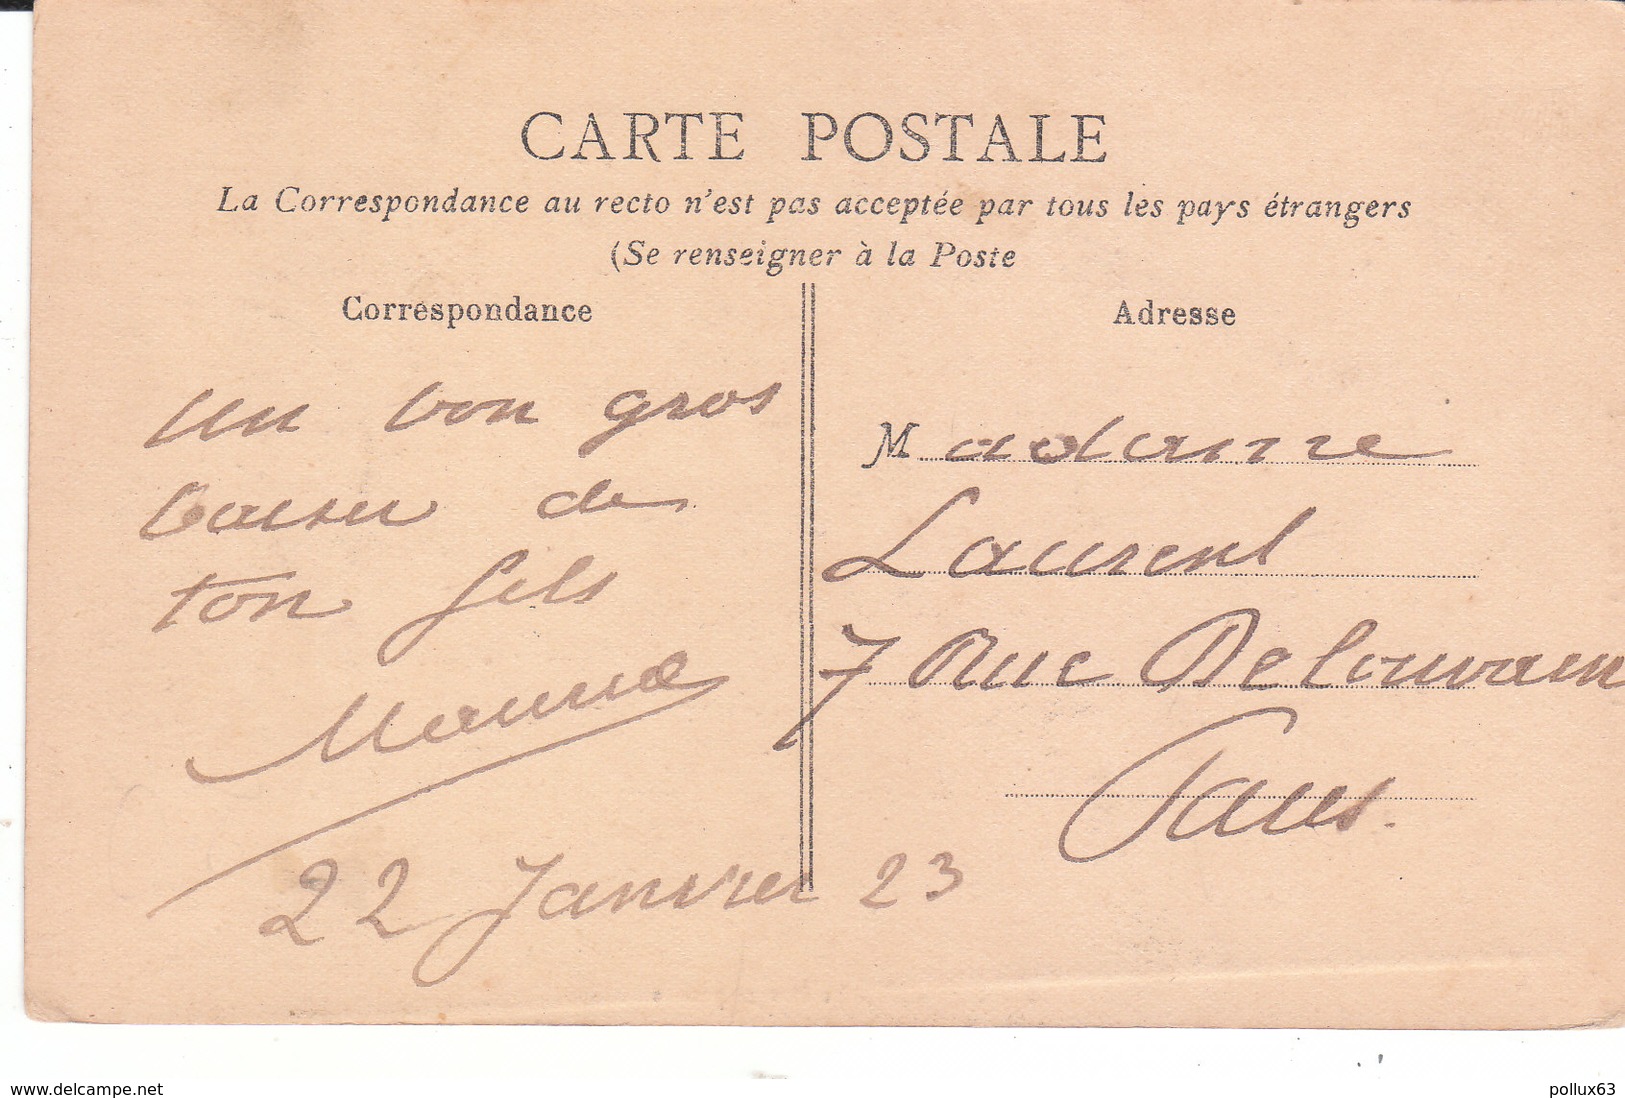 CARTE POSTALE
La Correspondance au recto n'est pas acceptée par tous les pays étrangers
(Se renseigner à la Poste
Correspondance
un bon gros
baiser de
ton fils
Maurice
22 Janvier 23
Adresse
Madame
Laurent
7 Rue De Louvain
Paris.
www.delcampe.net
pollux63